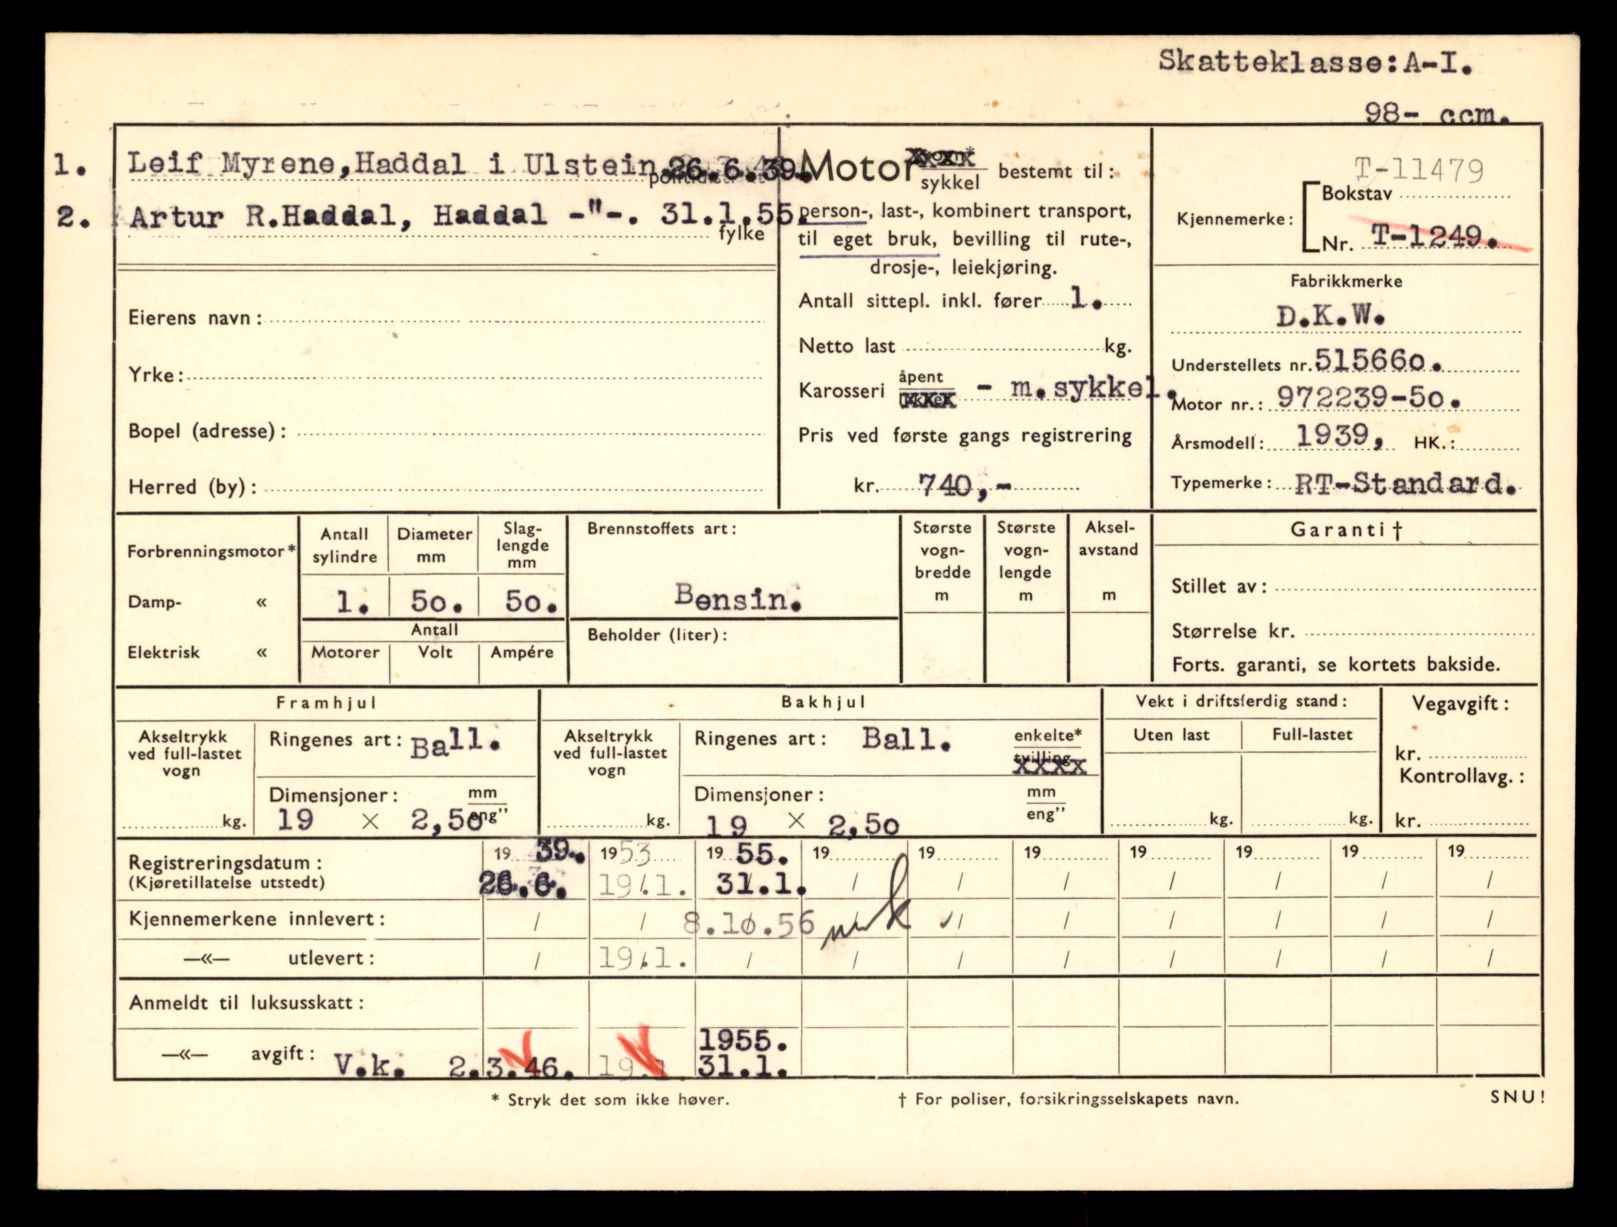 Skatteklasse: A-I.
98- ccm.
1. Leif Myrene, Haddal i Ulstein. 26.6.39.
2. Artur R. Haddal, Haddal -"-. 31.1.55.
fylke
Eierens navn:
Yrke:
Bopel (adresse):
Herred (by):
Motor sykkel bestemt til:
person-, last-, kombinert transport,
til eget bruk, bevilling til rute-,
drosje-, leiekjøring.
Antall sittepl. inkl. fører 1.
Netto last kg.
Karosseri åpent - m.sykkel.
Pris ved første gangs registrering
kr. 740,-
T-11479
Kjennemerke: Bokstav
Nr. T-1249.
Fabrikkmerke
D.K.W.
Understellets nr. 515660.
Motor nr.: 972239-50.
Årsmodell: 1939, HK.:
Typemerke: RT-Standard.
Forbrenningsmotor*
Damp- «
Elektrisk «
Antall sylindre
Diameter mm
Slag-lengde mm
1. 50. 50.
Antall
Motorer Volt Ampére
Brennstoffets art:
Bensin.
Beholder (liter):
Største vogn-bredde m
Største vogn-lengde m
Aksel-avstand m
Garanti †
Stillet av:
Størrelse kr.
Forts. garanti, se kortets bakside.
Framhjul
Akseltrykk ved full-lastet vogn
kg.
Ringenes art: Ball.
Dimensjoner: mm eng"
19 × 2,50
Bakhjul
Akseltrykk ved full-lastet vogn
kg.
Ringenes art: Ball. enkelte* tvilling
Dimensjoner: mm eng"
19 × 2,50
Vekt i driftsferdig stand:
Uten last Full-lastet
kg. kg.
Vegavgift:
kr.
Kontrollavg.:
kr.
Registreringsdatum: 19 39. 1953 19 55. 19 19 19 19 19 19 19
(Kjøretillatelse utstedt) 26.6. 19/1. 31.1. / / / / / / /
Kjennemerkene innlevert: / / 8.10.56 / / / / / / /
—«— utlevert: / 19/1. / / / / / / / /
Anmeldt til luksusskatt:
—«— avgift: V.k. 2.3.46. 1955. 31.1.
* Stryk det som ikke høver.
† For poliser, forsikringsselskapets navn.
SNU!